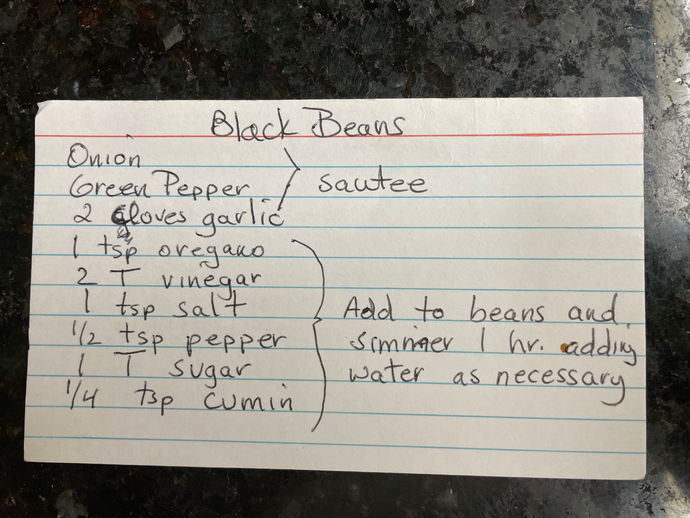 Black Beans
Onion
Green Pepper
2 cloves garlic
sautee
1 tsp oregano
2 T vinegar
1 tsp salt
1/2 tsp pepper
1 T sugar
1/4 tsp cumin
Add to beans and
simmer 1 hr. adding
water as necessary